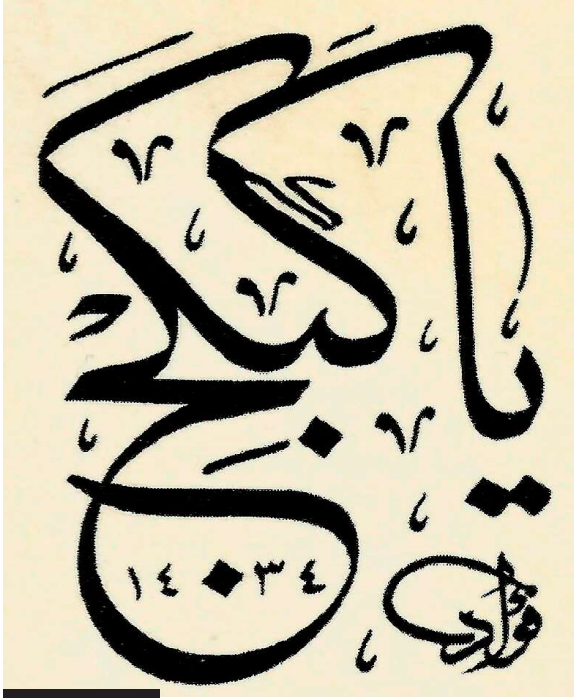 يا كبكج
١٤٣٤
فؤاد